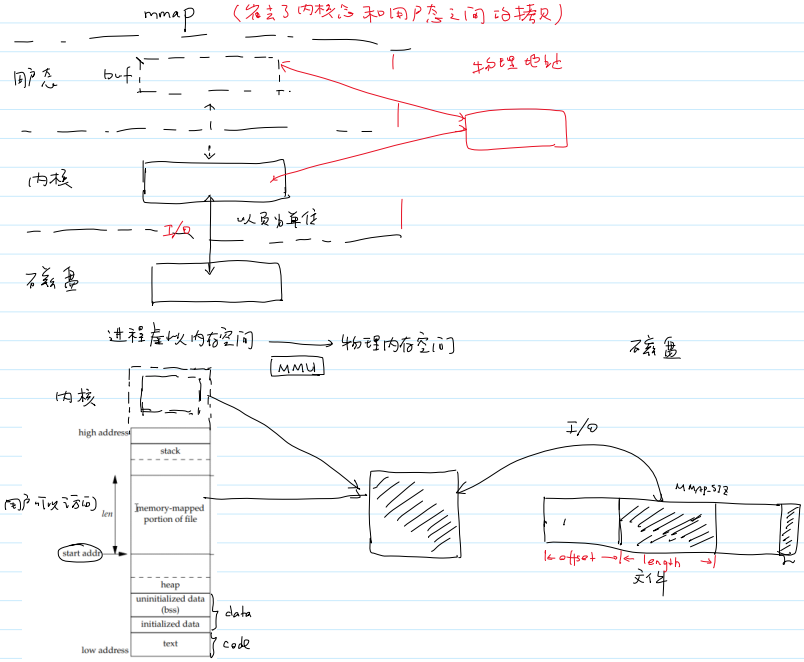 mmap （省去了内核态和用户态之间的拷贝）
用户态
buf
物理地址
内核
I/O
以页为单位
磁盘
进程虚拟内存空间
物理内存空间
MMU
磁盘
内核
high address
stack
I/O
(用户可以访问)
len
memory-mapped
portion of file
start addr
heap
uninitialized data
(bss)
initialized data
data
text
code
low address
offset
length
文件